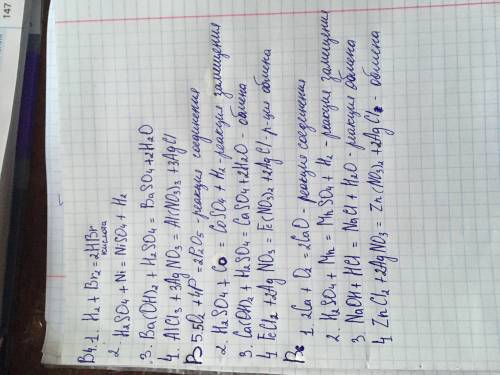 147
В4. 1. H2 + Br2 = 2HBr
кислота
2. H2SO4 + Ni = NiSO4 + H2
3. Ba(OH)2 + H2SO4 = BaSO4 + 2H2O
4. AlCl3 + 3AgNO3 = Al(NO3)3 + 3AgCl
В5 5O2 + 4P = 2P2O5 - реакция соединения
2. H2SO4 + Co = CoSO4 + H2 - реакция замещения
3. Ca(OH)2 + H2SO4 = CaSO4 + 2H2O - обмена
4. FeCl2 + 2Ag NO3 = Fe(NO3)2 + 2AgCl р-ция обмена
В6
1. 2Ca + O2 = 2CaO - реакция соединения
2. H2SO4 + Mn = MnSO4 + H2 - реакция замещения
3 NaOH + HCl = NaCl + H2O - реакция обмена
4 ZnCl2 + 2AgNO3 = Zn(NO3)2 + 2AgCl - обмена